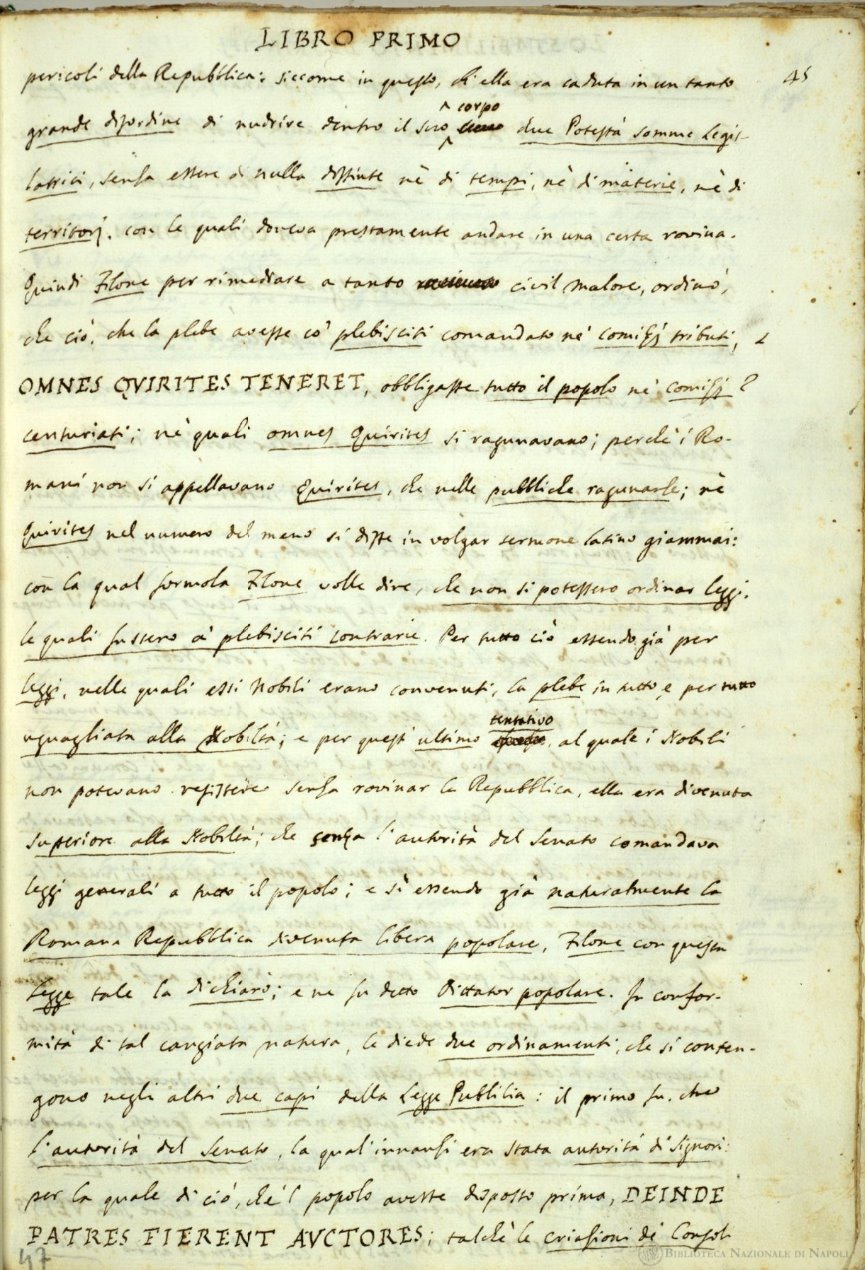 LIBRO PRIMO
45
pericoli della Repubblica: siccome in questo, ch'ella era caduta in un tanto
grande disordine di nudrire dentro il suo corpo due Potestà somme Legis-
latrici, senza essere di nulla distinte nè di tempi, nè di materie, nè di
territorj, con le quali doveva prestamente andare in una certa rovina.
Quindi Filone per rimediare a tanto civil malore, ordinò,
che ciò, che la plebe avesse co' plebisciti comandato ne' comizj tributi,
OMNES QVIRITES TENERET, obbligasse tutto il popolo ne' comizj
centuriati; ne' quali omnes Quirites si ragunavano; perchè i Ro-
mani non si appellavano Quirites, che nelle pubbliche ragunanze; nè
Quirites nel numero del meno si disse in volgar sermone latino giammai:
con la qual formola Filone volle dire, che non si potessero ordinar leggi,
le quali fussero a' plebisciti contrarie. Per tutto ciò essendo già per
leggi, nelle quali essi Nobili erano convenuti, la plebe in tutto, e per tutto
uguagliata alla Nobiltà; e per quest' ultimo tentativo, al quale i Nobili
non potevano resistere senza rovinar la Repubblica, ella era divenuta
superiore alla Nobiltà; che senza l'autorità del Senato comandava
leggi generali a tutto il popolo; e sì essendo già naturalmente la
Romana Repubblica divenuta libera popolare, Filone con questa
Legge tale la dichiarò; e ne fu detto Dittator popolare. In confor-
mità di tal cangiata natura, le diede due ordinamenti, che si conten-
gono negli altri due capi della Legge Publilia: il primo fu, che
l'autorità del Senato, la qual'innanzi era stata autorità di Signori:
per la quale di ciò, che 'l popolo avesse disposto prima, DEINDE
PATRES FIERENT AVCTORES; talchè le criazioni de' Consoli
47
BIBLIOTECA NAZIONALE DI NAPOLI